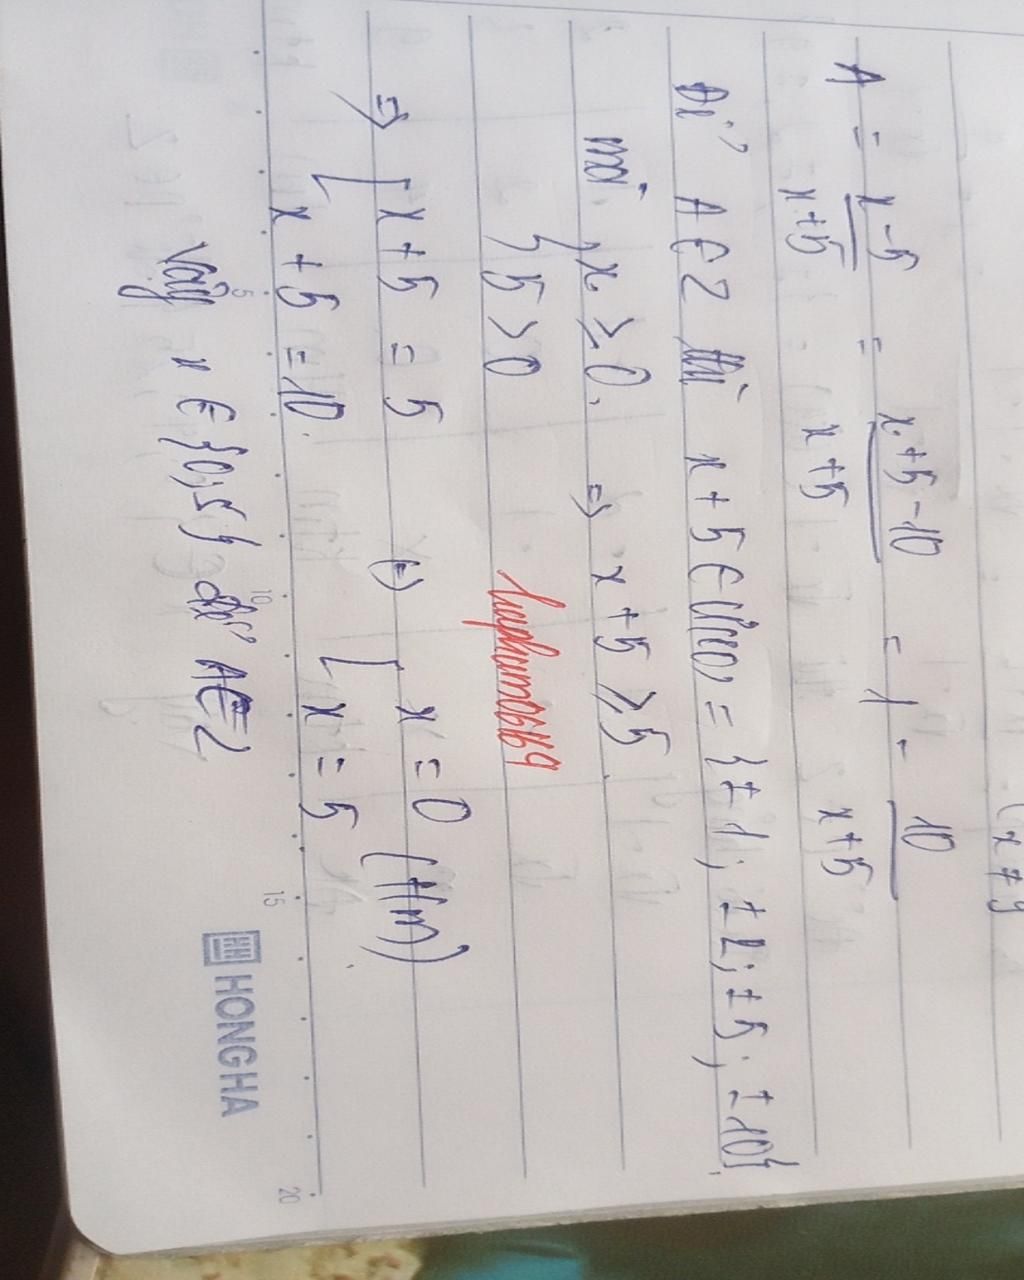 (x ≠ 9
A = x-5 / x+5 = x+5-10 / x+5 = 1 - 10 / x+5
Để A ∈ Z thì x+5 ∈ Ư(10) = {±1; ±2; ±5; ±10}.
mà { x ≥ 0. => x+5 ≥ 5.
5 > 0
liuphutho6169
=> [ x+5 = 5 (=) [ x = 0 (t/m)
x+5 = 10. x = 5
Vậy x ∈ {0;5} để A∈Z
5 10 15 20
HONG HA